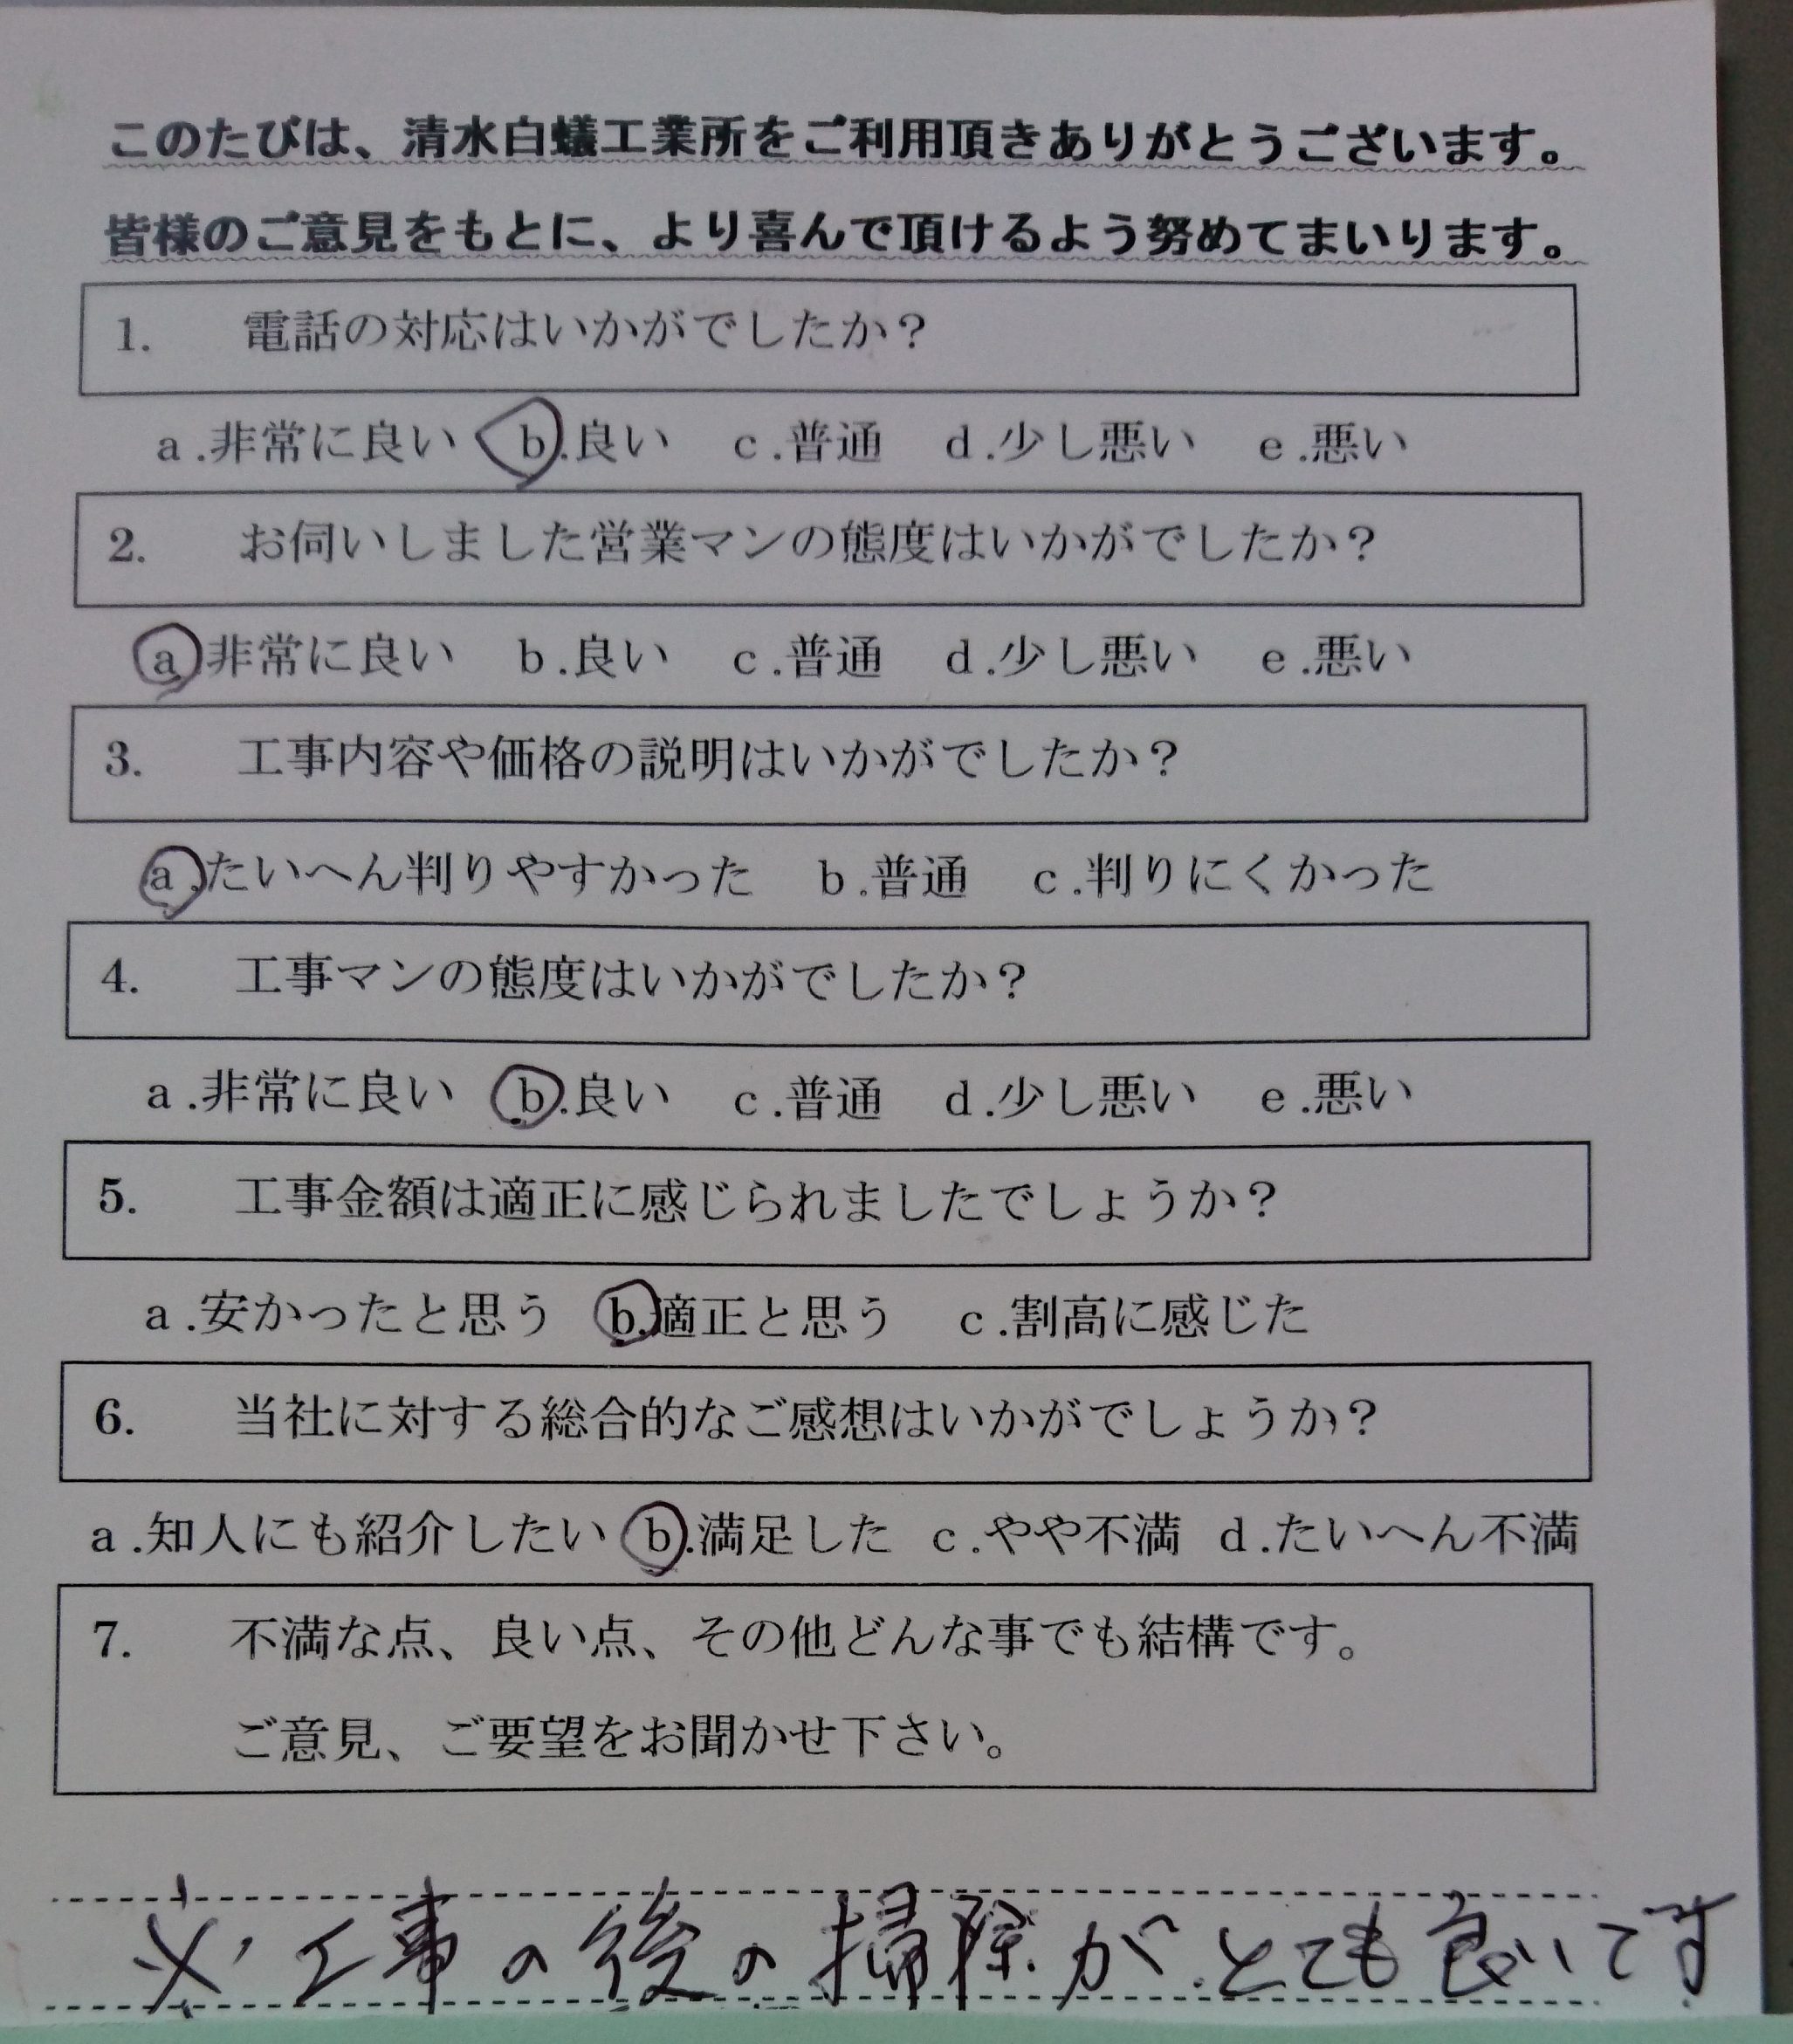 このたびは、清水白蟻工業所をご利用頂きありがとうございます。
皆様のご意見をもとに、より喜んで頂けるよう努めてまいります。
1. 電話の対応はいかがでしたか？
a.非常に良い b.良い c.普通 d.少し悪い e.悪い
2. お伺いしました営業マンの態度はいかがでしたか？
a.非常に良い b.良い c.普通 d.少し悪い e.悪い
3. 工事内容や価格の説明はいかがでしたか？
a.たいへん判りやすかった b.普通 c.判りにくかった
4. 工事マンの態度はいかがでしたか？
a.非常に良い b.良い c.普通 d.少し悪い e.悪い
5. 工事金額は適正に感じられましたでしょうか？
a.安かったと思う b.適正と思う c.割高に感じた
6. 当社に対する総合的なご感想はいかがでしょうか？
a.知人にも紹介したい b.満足した c.やや不満 d.たいへん不満
7. 不満な点、良い点、その他どんな事でも結構です。
ご意見、ご要望をお聞かせ下さい。
※工事の後の掃除がとても良いです